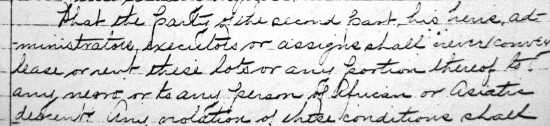 That the party of the second part, his heirs, ad-
ministrators, executors or assigns shall never convey
lease or rent these lots or any portion thereof to
any negro, or to any person of African or Asiatic
descent. Any violation of these conditions shall